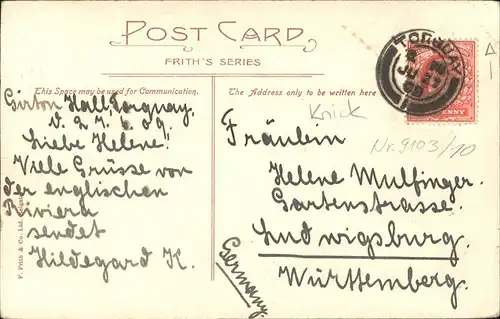 POST CARD
FRITH'S SERIES
This Space may be used for Communication.
The Address only to be written here
Girton Hall Torquay.
d. 27. 6. 09.
Liebe Helene!
Viele Grüsse von
der englischen
Riviera
sendet
Hildegard K.
F. Frith & Co. Ltd., Reigate
TORQUAY
JU 27
09
PENNY
Knick
Nr. 9103/10
Fräulein
Helene Mulfinger.
Gartenstrasse.
Ludwigsburg.
Württemberg.
Germany.